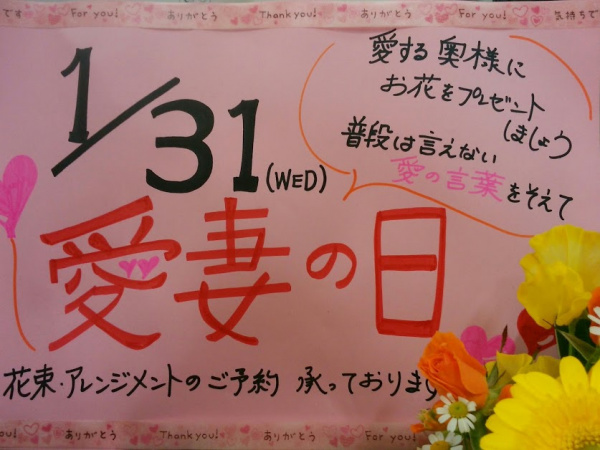 です For you! ありがとう Thank you! ありがとう For you! 気持ちで
1/31(WED)
愛する奥様に
お花をプレゼント
しましょう
普段は言えない
愛の言葉をそえて
愛妻の日
花束・アレンジメントのご予約 承っております
you! ありがとう Thank you! ありがとう For you!